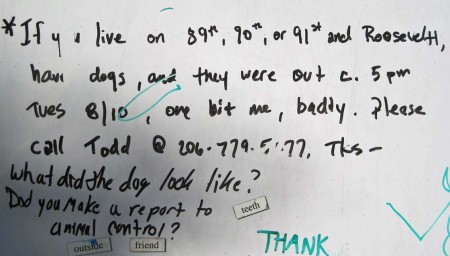 *If y u live on 89th, 90th, or 91st and Roosevelt,
have dogs, and they were out c. 5 pm
Tues 8/10, one bit me, badly. Please
call Todd @ Tks -
What did the dog look like?
Did you make a report to
teeth
animal control?
outside friend
THANK